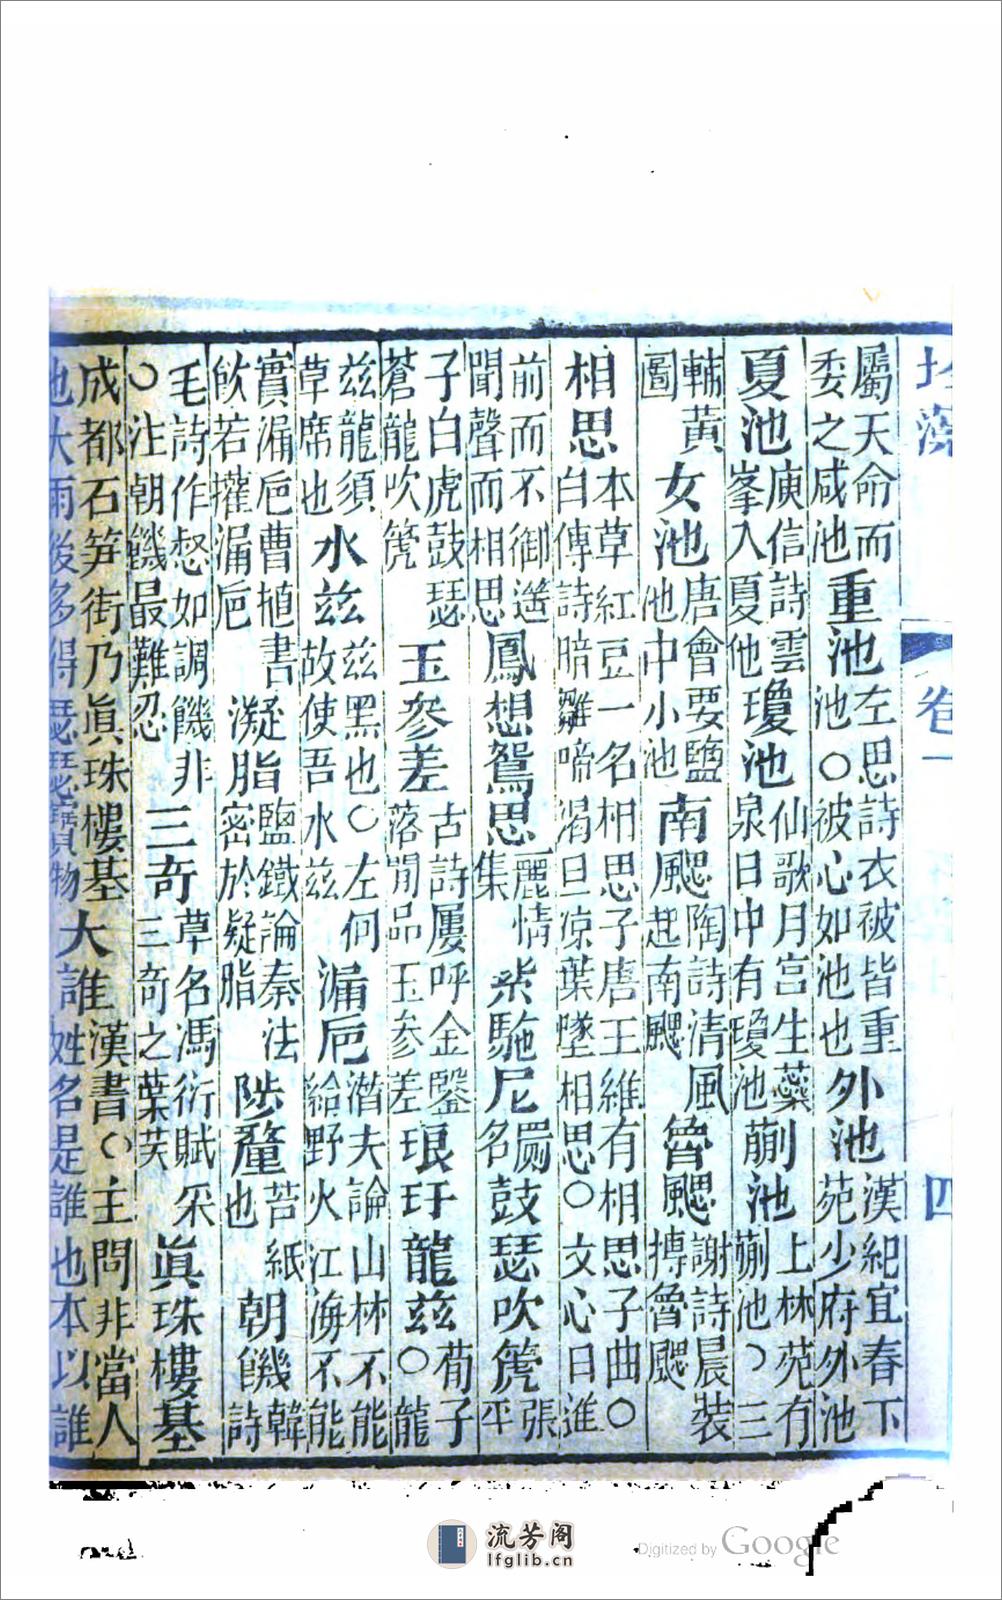 卷一 四
屬天命而委之咸池重池左思詩衣被皆重池○被心如池也外池漢紀宜春下苑少府外池
夏池庾信詩雲峯入夏池瓊池仙歌月宮生蘂泉日中有瓊池蒯池上林苑有蒯池○三
輔黃圖女池唐會要鹽池中小池南颸陶詩清風風起南颸魯颸謝詩晨裝搏魯颸
相思本草紅豆一名相思子唐王維有相思子曲○白傳詩暗雛啼渴旦凉葉墜相思○文心日進
前而不御遥聞聲而相思鳳想鴛思麗情集紫駞尼罽名鼓瑟吹篪張平
子白虎鼓瑟蒼龍吹篪玉參差古詩屢呼金鑿落閒品玉參差琅玕龍玆荀子○龍
玆龍須草席也水玆玆黑也○左何故使吾水玆漏巵潛夫論山林不能給野火江海不能
實漏巵曹植書飲若灌漏巵凝脂鹽鐵論秦法密於凝脂陟釐苔紙也朝饑韓詩
毛詩作惄如調饑非○注朝饑最難忍三奇草名馮衍賦采三奇之葉芙眞珠樓基
成都石笋街乃眞珠樓基地大雨後多得瑟瑟寶物大誰漢書○主問非當人姓名是誰也本以誰
流芳阁
lfglib.cn
Digitized by Google